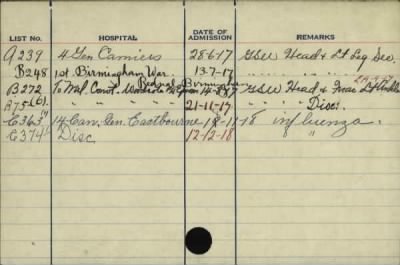 LIST No. HOSPITAL DATE OF ADMISSION REMARKS
A239 4 Gen Camiers 28-6-17 GSW Head & Lt Leg Sev.
B248 1st. Birmingham War. 13-7-17 " " " "
B272 To Mil. Conv. GSW Head & Frac Lt
A75 " " " " 21-11-17 " " Disc:
E363 14 Can. Gen. Eastbourne 18-11-18 influenza.
E374 Disc 12-12-18 "